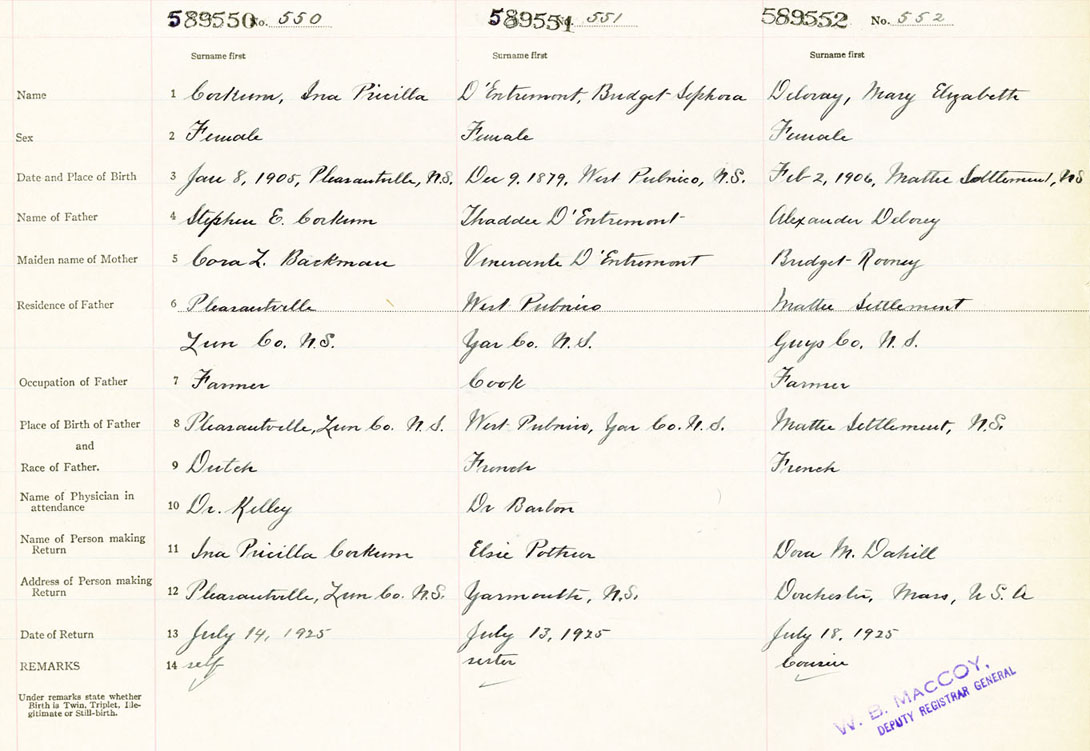 589550 No. 550 589551 No. 551 589552 No. 552
Surname first Surname first Surname first
Name 1 Corkum, Ina Pricilla D'Entremont, Bridget Sephora Deloray, Mary Elizabeth
Sex 2 Female Female Female
Date and Place of Birth 3 Jan 8, 1905, Pleasantville, N.S. Dec 9, 1879, West Pubnico, N.S. Feb 2, 1906, Mattie Settlement, N.S
Name of Father 4 Stephen E. Corkum Thaddee D'Entremont Alexander Delorey
Maiden name of Mother 5 Cora Z. Backman Venerante D'Entremont Bridget Rooney
Residence of Father 6 Pleasantville West Pubnico Mattie Settlement
Lun Co. N.S. Yar Co. N.S. Guys Co. N.S.
Occupation of Father 7 Farmer Cook Farmer
Place of Birth of Father 8 Pleasantville, Lun Co. N.S. West Pubnico, Yar Co. N.S. Mattie Settlement, N.S.
and
Race of Father. 9 Dutch French French
Name of Physician in
attendance 10 Dr. Kelley Dr Barton
Name of Person making
Return 11 Ina Pricilla Corkum Elsie Pothier Dora M. Dahill
Address of Person making
Return 12 Pleasantville, Lun Co. N.S. Yarmouth, N.S. Dorchester, Mass, U.S.A
Date of Return 13 July 14, 1925 July 13, 1925 July 18, 1925
REMARKS 14 self sister Cousin
Under remarks state whether
Birth is Twin, Triplet, Ille-
gitimate or Still-birth.
W. B. MACCOY,
DEPUTY REGISTRAR GENERAL